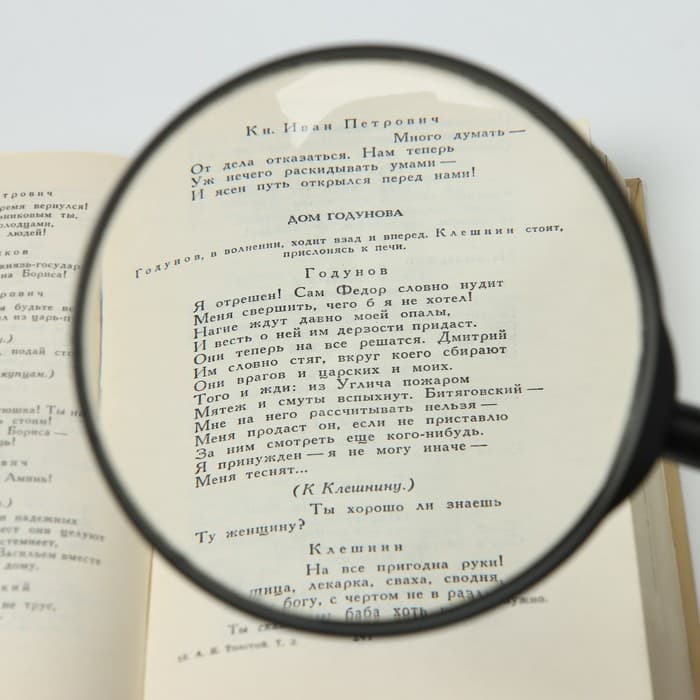 тровнч
ремя вернулся!
ьниковым ты,
олодцами,
людей!
ков
князь-государ
на Бориса!
рович
ы будьте
ал из царь-п
подай
купцам.)
юшка! Ты
стоим!
Бориса —
вич
Аминь!
и надежных
вест они целуют
стемнеет,
Васильем вместе
дому.
кий
не трус,
Кн. Иван Петрович
Много думать —
От дела отказаться. Нам теперь
Уж нечего раскидывать умами —
И ясен путь открылся перед нами!
ДОМ ГОДУНОВА
Годунов, в волнении, ходит взад и вперед. Клешнин стоит,
прислонясь к печи.
Годунов
Я отрешен! Сам Федор словно нудит
Меня свершить, чего б я не хотел!
Нагие ждут давно моей опалы,
И весть о ней им дерзости придаст.
Они теперь на все решатся. Дмитрий
Им словно стяг, вкруг коего сбирают
Они врагов и царских и моих.
Того и жди: из Углича пожаром
Мятеж и смуты вспыхнут. Битяговский —
Мне на него рассчитывать нельзя —
Меня продаст он, если не приставлю
За ним смотреть еще кого-нибудь.
Я принужден — я не могу иначе —
Меня теснят...
(К Клешнину.)
Ты хорошо ли знаешь
Ту женщину?
Клешнин
На все пригодна руки!
лекарка, сваха, сводня,
богу, с чертом не в
баба хоть
Ты
13. А. К. Толстой, т. 2.